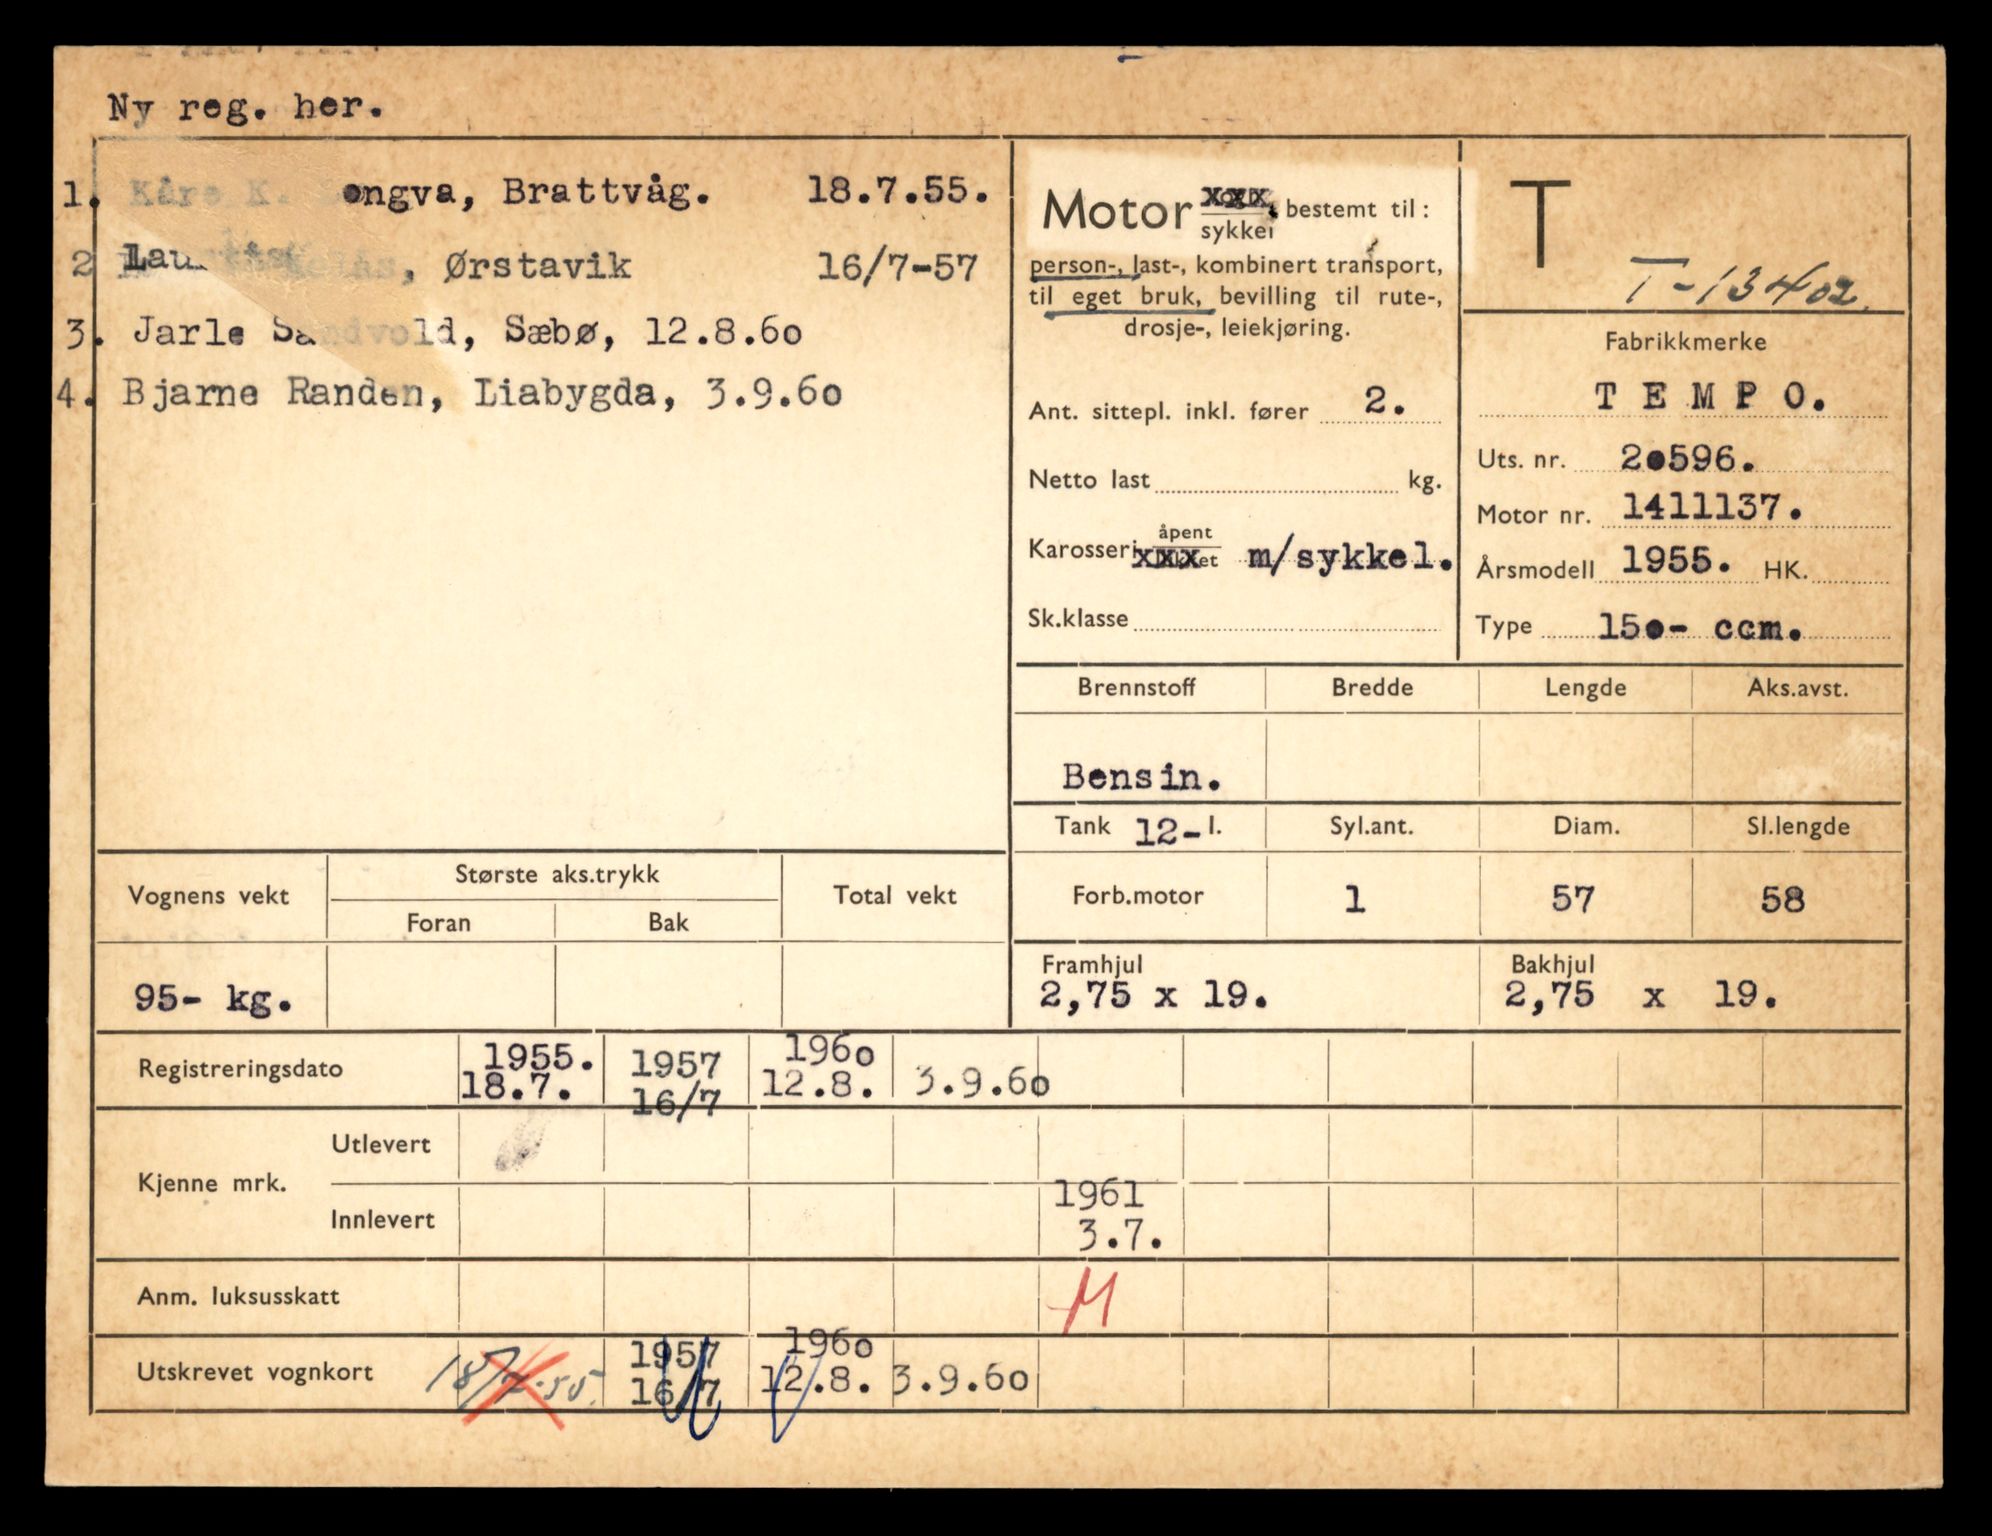 Ny reg. her.
1. Kåre K. Longva, Brattvåg. 18.7.55.
2 , Ørstavik 16/7-57
3. Jarle Sandvold, Sæbø, 12.8.60
4. Bjarne Randen, Liabygda, 3.9.60
Motor xxx, bestemt til:
sykkel
person-, last-, kombinert transport,
til eget bruk, bevilling til rute-,
drosje-, leiekjøring.
Ant. sittepl. inkl. fører 2.
Netto last kg.
Karosseri åpent xxx m/sykkel.
Sk.klasse
T
T-13402.
Fabrikkmerke
TEMPO.
Uts. nr. 20596.
Motor nr. 1411137.
Årsmodell 1955. HK.
Type 150- ccm.
Brennstoff Bredde Lengde Aks.avst.
Bensin.
Tank 12- l. Syl.ant. Diam. Sl.lengde
Forb.motor 1 57 58
Framhjul Bakhjul
2,75 x 19. 2,75 x 19.
Vognens vekt Største aks.trykk Total vekt
Foran Bak
95- kg.
Registreringsdato 1955. 18.7. 1957 16/7 1960 12.8. 3.9.60
Kjenne mrk. Utlevert
Innlevert 1961 3.7.
Anm. luksusskatt M
Utskrevet vognkort 18/7-55. 1957 16/7 1960 12.8. 3.9.60